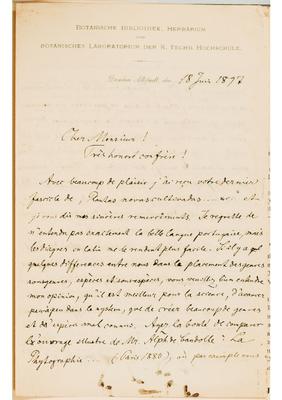 BOTANISCHE BIBLIOTHEK, HERBARIUM
UND
BOTANISCHES LABORATORIUM DER K. TECHN. HOCHSCHULE.
Dresden Altstadt, den 18 Juin 1897
Cher Monsieur!
Très honoré confrère!
Avec beaucoup de plaisir j'ai reçu votre dernier
fascicle de „Plantas novas cultivadas... etc. et
je vous dis mes sincères remerciments. Je regrette de
n'entendre pas exactement la belle langue portugaise, mais
les diagnoses en latin me le rendent plus facile. Il y a
quelques différences entre nous dans le placement des genres
sousgenres, espèces et sousespèces, vous veuillez bien entendre
mon opinion, qu'il est meilleur pour la science, d'avancer
peu à peu dans le système, que de créer beaucoup de genres
et d'espèces mal connus. Ayez la bonté de comparer
l'ouvrage illustre de Mr. Alph. de Candolle: La
Phytographie... (Paris 1880), où par exemple vous